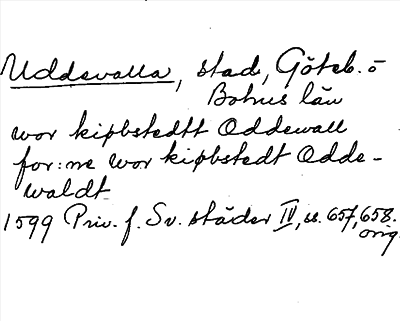 Uddevalla, stad, Göteb. o
Bohus län
wor kiøbstedtt Oddewall
for:ne wor kiøbstedt Odde-
waldt
1599 Priv. f. Sv. städer IV, ss. 657, 658.
orig.